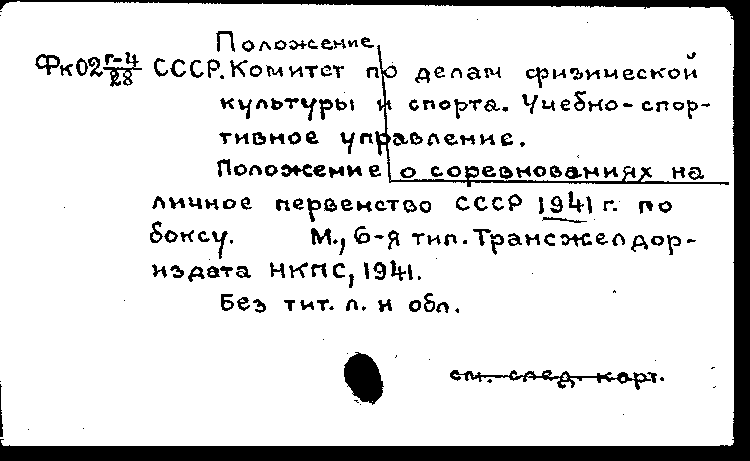 Положение
Фк02 г-4/28 СССР. Комитет по делам физической
культуры и спорта. Учебно-спор-
тивное управление.
Положение о соревнованиях на
личное первенство СССР 1941 г. по
боксу. М., 6-я тип. Трансжелдор-
издата НКПС, 1941.
Без тит. л. и обл.
см. след. карт.